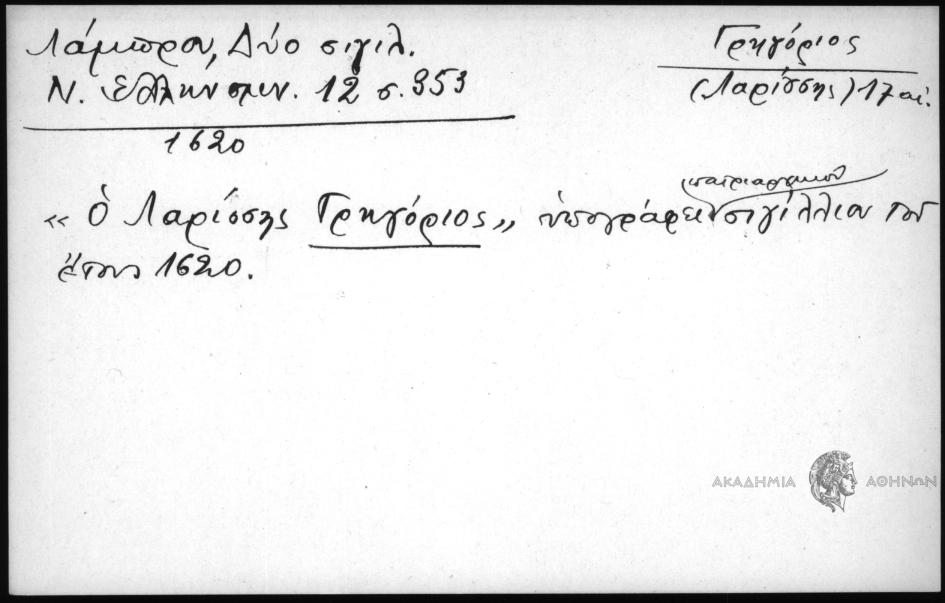 Λάμπρου, Δύο σιγιλ.
Ν. Ελληνομν. 12 σ. 353
1620
Γρηγόριος
(Λαρίσσης) 17 αἰ.
« Ὁ Λαρίσσης Γρηγόριος», ὑπογράφει πατριαρχικοῦ σιγίλλιον τοῦ
ἔτους 1620.
ΑΚΑΔΗΜΙΑ ΑΘΗΝΩΝ